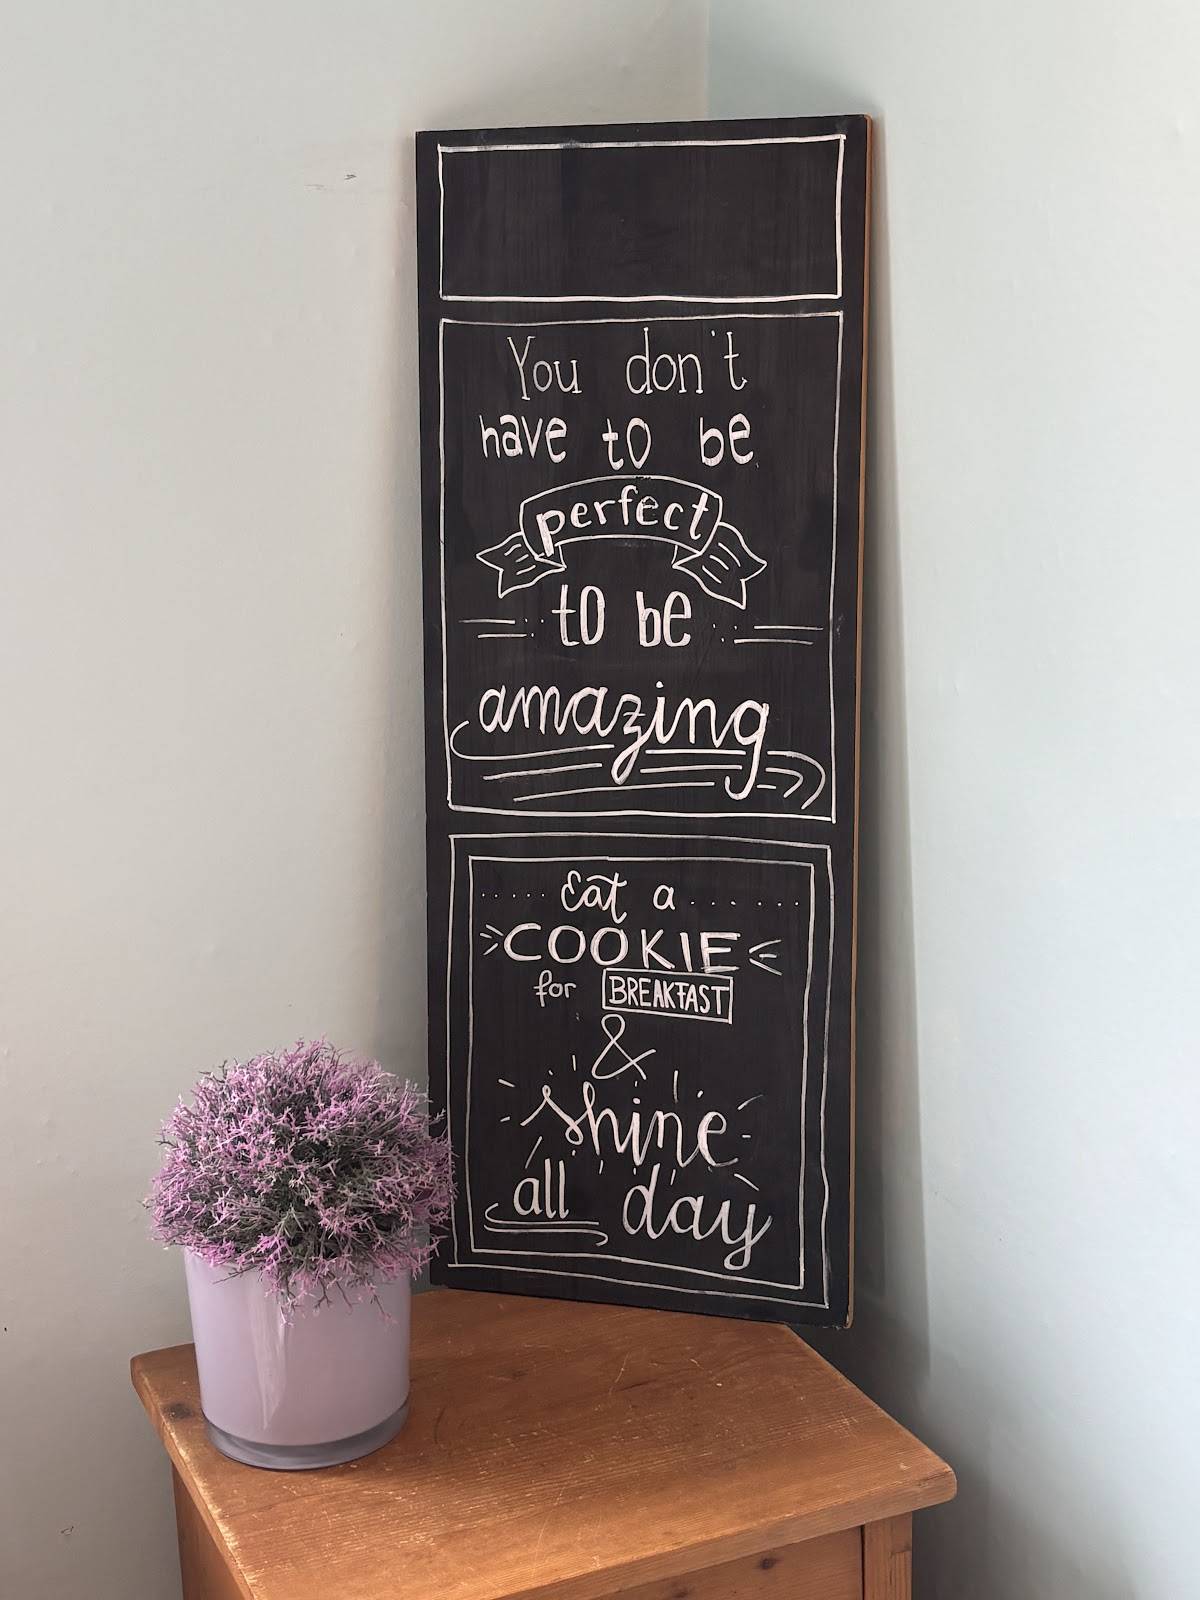 You don't
have to be
perfect
to be
amazing
Eat a
COOKIE
for BREAKFAST
&
shine
all day